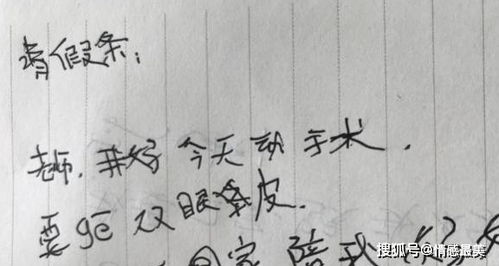 请假条:
老师，我好今天动手术.
要gē双眼皮.
回家陪我
搜狐号@情感最美